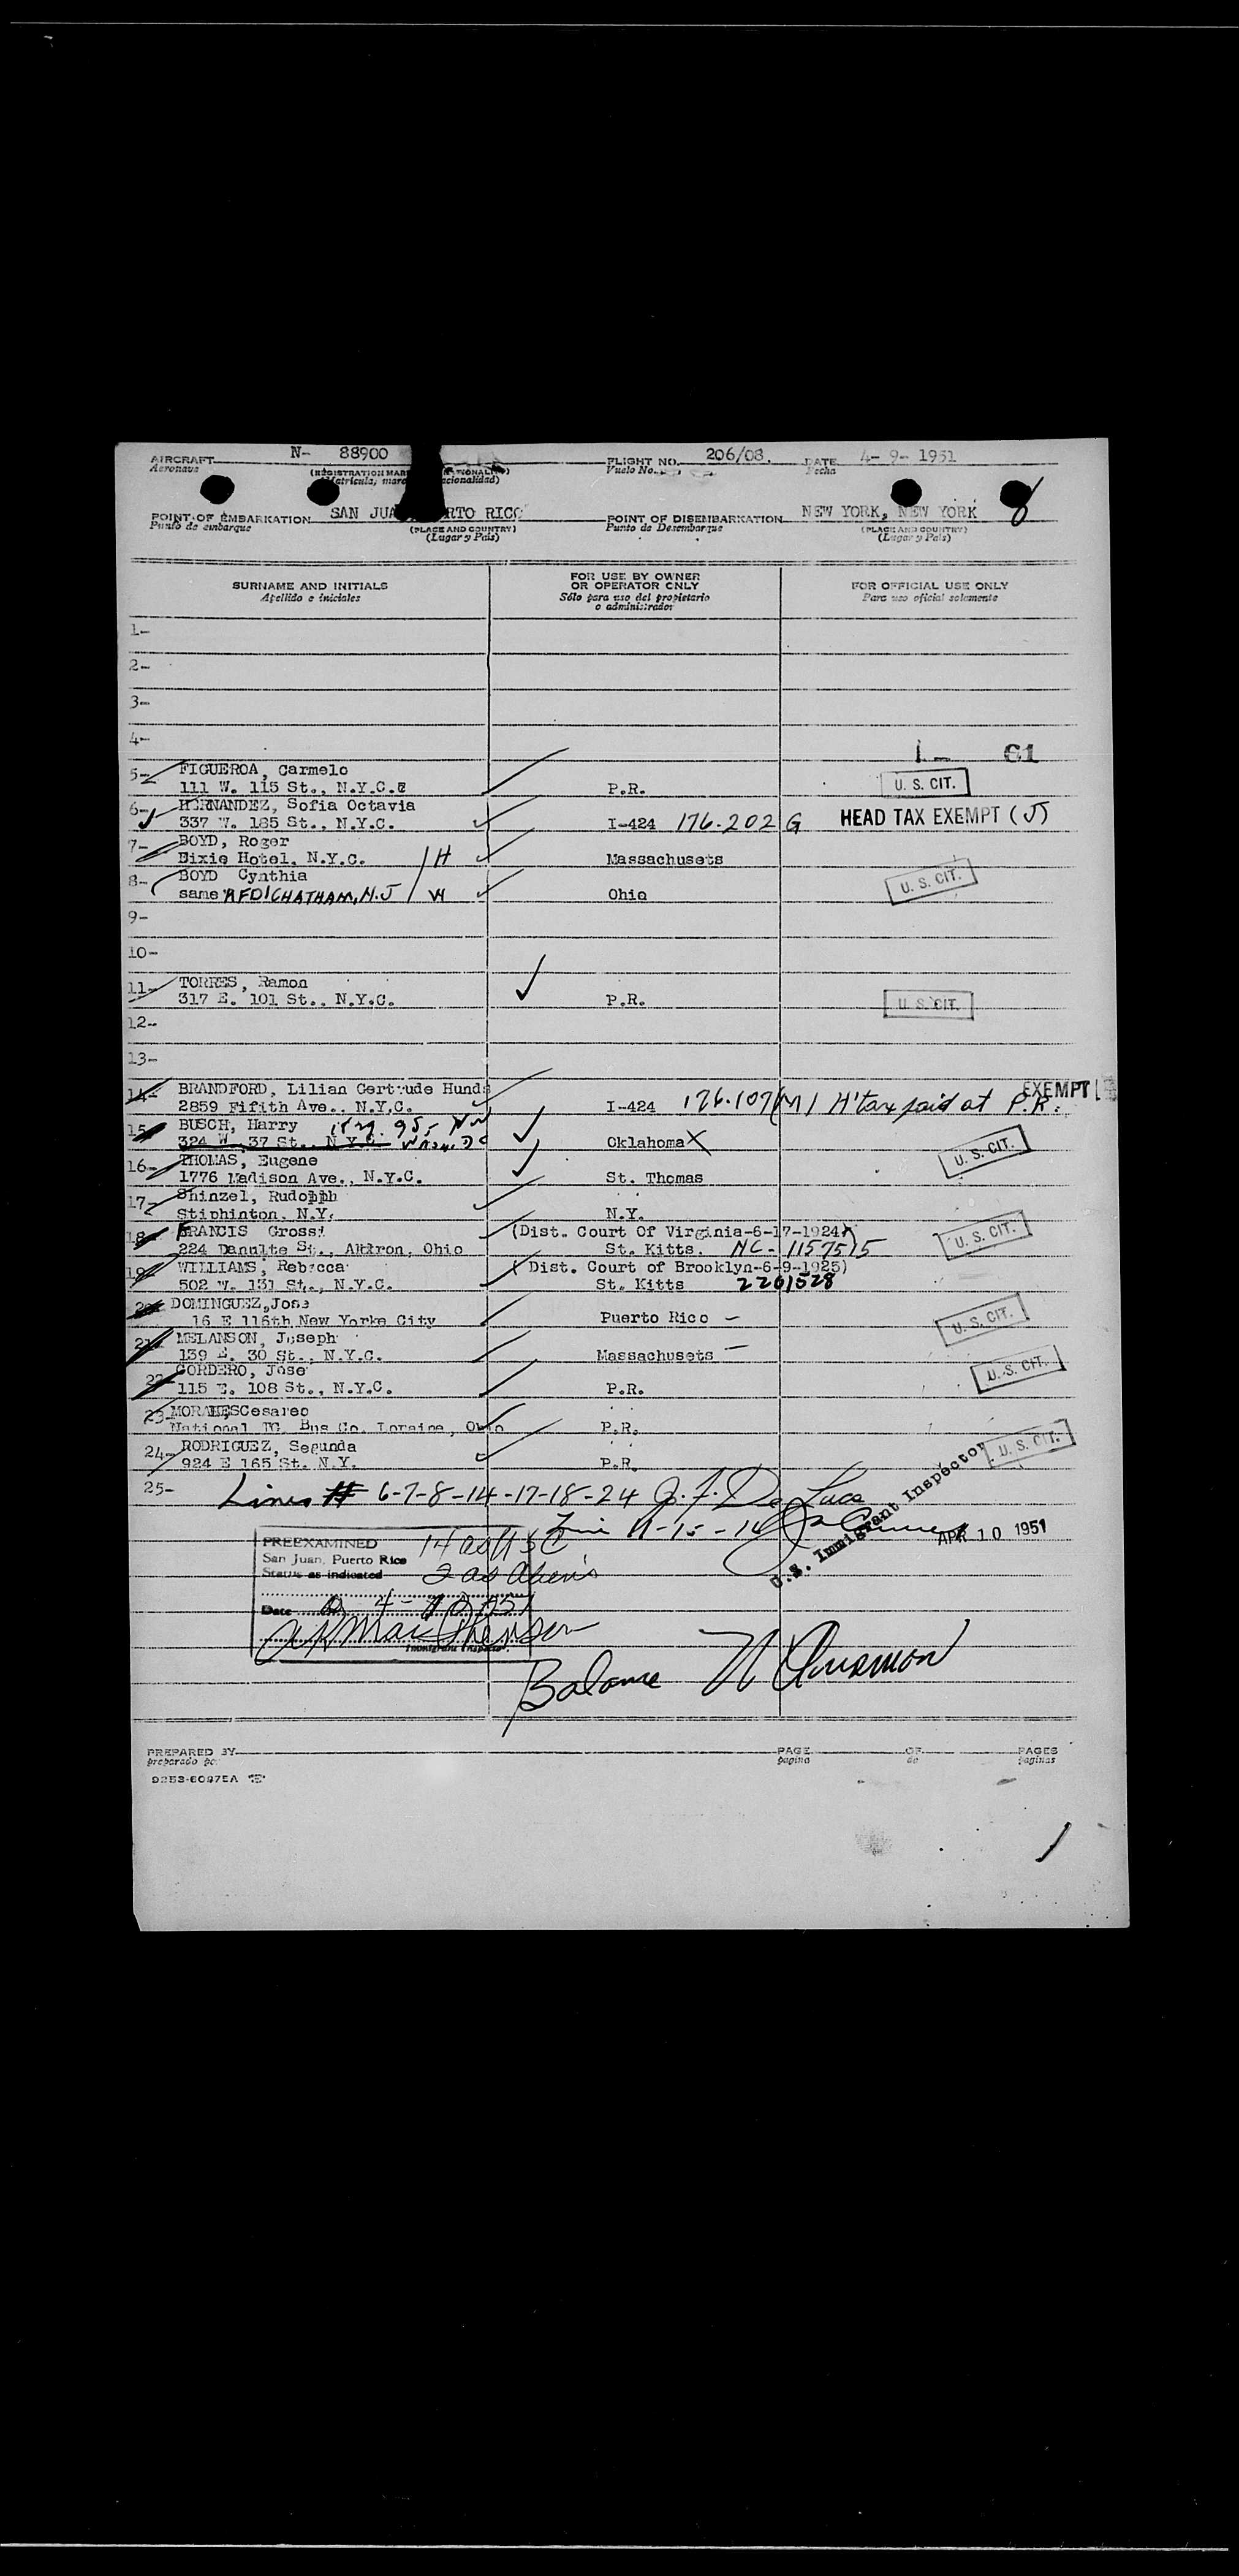 AIRCRAFT N- 88900 FLIGHT NO. 206/08. DATE 4- 9- 1951
Aeronave (REGISTRATION MAR Vuelo No. Fecha
POINT OF EMBARKATION SAN JUA RTO RICO POINT OF DISEMBARKATION NEW YORK, NEW YORK 8
Punto de embarque (PLACE AND COUNTRY) Punto de Desembarque (PLACE AND COUNTRY)
(Lugar y País) (Lugar y País)
SURNAME AND INITIALS FOR USE BY OWNER OR OPERATOR ONLY FOR OFFICIAL USE ONLY
Apellido e iniciales Sólo para uso del propietario o administrador Para uso oficial solamente
1-
2-
3-
4-
1 - 61
5- FIGUEROA, Carmelo
111 W. 115 St., N.Y.C. P.R. U. S. CIT.
6- HERNANDEZ, Sofia Octavia
337 W. 185 St., N.Y.C. I-424 176.202 G HEAD TAX EXEMPT (J)
7- BOYD, Roger
Dixie Hotel, N.Y.C. H Massachusets
8- BOYD Cynthia
same RFD1 CHATHAM, N.J W Ohio U. S. CIT.
9-
10-
11- TORRES, Ramon
317 E. 101 St., N.Y.C. P.R. U. S. CIT.
12-
13-
14- BRANDFORD, Lilian Gertrude Hunds EXEMPT
2859 Fifith Ave., N.Y.C. I-424 176.107(M) H'tax paid at P.R.
15- BUSCH, Harry
324 W. 37 St., N.Y.C. Wash, DC Oklahoma X
16- THOMAS, Eugene
1776 Madison Ave., N.Y.C. St. Thomas U. S. CIT.
17- Shinzel, Rudolph
Stiphinton, N.Y. N.Y.
18- FRANCIS Gross (Dist. Court Of Virginia-6-17-1924)
224 Danulte St., Akron, Ohio St. Kitts. NC- 1157515 U. S. CIT.
19- WILLIAMS, Rebecca ( Dist. Court of Brooklyn-6-9-1925)
502 W. 131 St., N.Y.C. St. Kitts 2261528
20- DOMINGUEZ, Jose
16 E 116th New Yorke City Puerto Rico - U. S. CIT.
21- MELANSON, Joseph
139 E. 30 St., N.Y.C. Massachusets -
22- CORDERO, Jose
115 E. 108 St., N.Y.C. P.R. U. S. CIT.
23- MORALES Cesareo
National TG. Bus Co. Loraine, Ohio P.R.
24- RODRIGUEZ, Segunda
924 E 165 St. N.Y. P.R. U. S. CIT.
25- Lines # 6-7-8-14-17-18-24 J. F. De Luca
U.S. Immigrant Inspector
APR 10 1951
PREEXAMINED 14 as USC
San Juan, Puerto Rico
Status as indicated 2 as Aliens
Date
Immigrant Inspector
Balance
PREPARED BY PAGE OF PAGES
preparado por pagina de paginas
9253-60975A